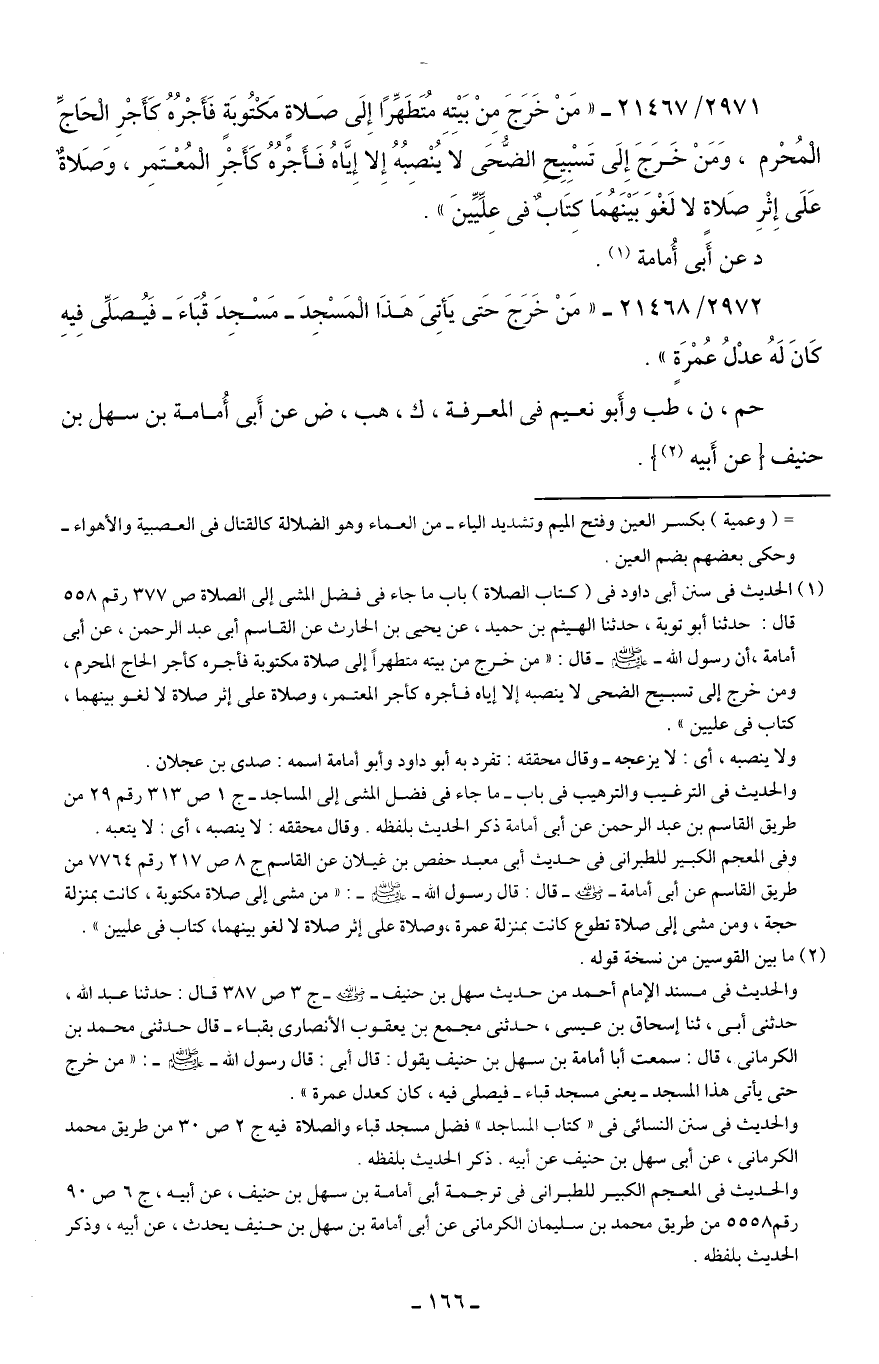 ٢١٤٦٧/٢٩٧١ ـ « مَنْ خَرَجَ مِنْ بَيْتِهِ مُتَطَهِّرًا إِلَى صَلاةٍ مَكْتُوبَةٍ فَأَجْرُهُ كَأَجْرِ الْحَاجِّ
الْمُحْرِمِ ، وَمَنْ خَرَجَ إِلَى تَسْبِيحِ الضُّحَى لا يُنْصِبُهُ إِلا إِيَّاهُ فَأَجْرُهُ كَأَجْرِ الْمُعْتَمِرِ ، وَصَلاةٌ
عَلَى إِثْرِ صَلَاةٍ لا لَغْوَ بَيْنَهُمَا كِتَابٌ فى عِلِّيِّينَ » .
د عن أَبى أُمامة (١) .
٢١٤٦٨/٢٩٧٢ ـ « مَنْ خَرَجَ حَتى يَأتىَ هَذَا الْمَسْجِدَ ـ مَسْجِدَ قُبَاءَ ـ فَيُصَلِّى فِيهِ
كَانَ لَهُ عدْلُ عُمْرَةٍ » .
حم ، ن ، طب وأَبو نعيم فى المعرفة ، ك ، هب ، ض عن أَبى أُمامة بن سهل بن
حنيف { عن أَبيه (٢) } .
= ( وعمية ) بكسر العين وفتح الميم وتشديد الياء ـ من العماء وهو الضلالة كالقتال فى العصبية والأهواء ـ
وحكى بعضهم بضم العين .
(١) الحديث فى سنن أبى داود فى ( كتاب الصلاة ) باب ما جاء فى فضل المشى إلى الصلاة ص ٣٧٧ رقم ٥٥٨
قال : حدثنا أبو توبة ، حدثنا الهيثم بن حميد ، عن يحيى بن الحارث عن القاسم أبى عبد الرحمن ، عن أبى
أمامة ،أن رسول الله ـ ﷺ ـ قال : « من خرج من بيته متطهراً إلى صلاة مكتوبة فأجره كأجر الحاج المحرم ،
ومن خرج إلى تسبيح الضحى لا ينصبه إلا إياه فأجره كأجر المعتمر، وصلاة على إثر صلاة لا لغو بينهما ،
كتاب فى عليين » .
ولا ينصبه ، أى : لا يزعجه ـ وقال محققه : تفرد به أبو داود وأبو أمامة اسمه : صدى بن عجلان .
والحديث فى الترغيب والترهيب فى باب ـ ما جاء فى فضل المشى إلى المساجد ـ ج ١ ص ٣١٣ رقم ٢٩ من
طريق القاسم بن عبد الرحمن عن أبى أمامة ذكر الحديث بلفظه . وقال محققه : لا ينصبه ، أى : لا يتعبه .
وفى المعجم الكبير للطبرانى فى حديث أبى معبد حفص بن غيلان عن القاسم ج ٨ ص ٢١٧ رقم ٧٧٦٤ من
طريق القاسم عن أبى أمامة ـ رضي الله عنه ـ قال : قال رسول الله ـ ﷺ ـ : « من مشى إلى صلاة مكتوبة ، كانت بمنزلة
حجة ، ومن مشى إلى صلاة تطوع كانت بمنزلة عمرة ،وصلاة على إثر صلاة لا لغو بينهما، كتاب فى عليين » .
(٢) ما بين القوسين من نسخة قوله .
والحديث فى مسند الإمام أحمد من حديث سهل بن حنيف ـ رضي الله عنه ـ ج ٣ ص ٣٨٧ قال : حدثنا عبد الله ،
حدثنى أبى ، ثنا إسحاق بن عيسى ، حدثنى مجمع بن يعقوب الأنصارى بقباء ـ قال حدثنى محمد بن
الكرمانى ، قال : سمعت أبا أمامة بن سهل بن حنيف يقول : قال أبى : قال رسول الله ـ ﷺ ـ : « من خرج
حتى يأتى هذا المسجد ـ يعنى مسجد قباء ـ فيصلى فيه ، كان كعدل عمرة » .
والحديث فى سنن النسائى فى « كتاب المساجد » فضل مسجد قباء والصلاة فيه ج ٢ ص ٣٠ من طريق محمد
الكرمانى ، عن أبى سهل بن حنيف عن أبيه . ذكر الحديث بلفظه .
والحديث فى المعجم الكبير للطبرانى فى ترجمة أبى أمامة بن سهل بن حنيف ، عن أبيه ، ج ٦ ص ٩٠
رقم٥٥٥٨ من طريق محمد بن سليمان الكرمانى عن أبى أمامة بن سهل بن حنيف يحدث ، عن أبيه ، وذكر
الحديث بلفظه .
ـ ١٦٦ ـ